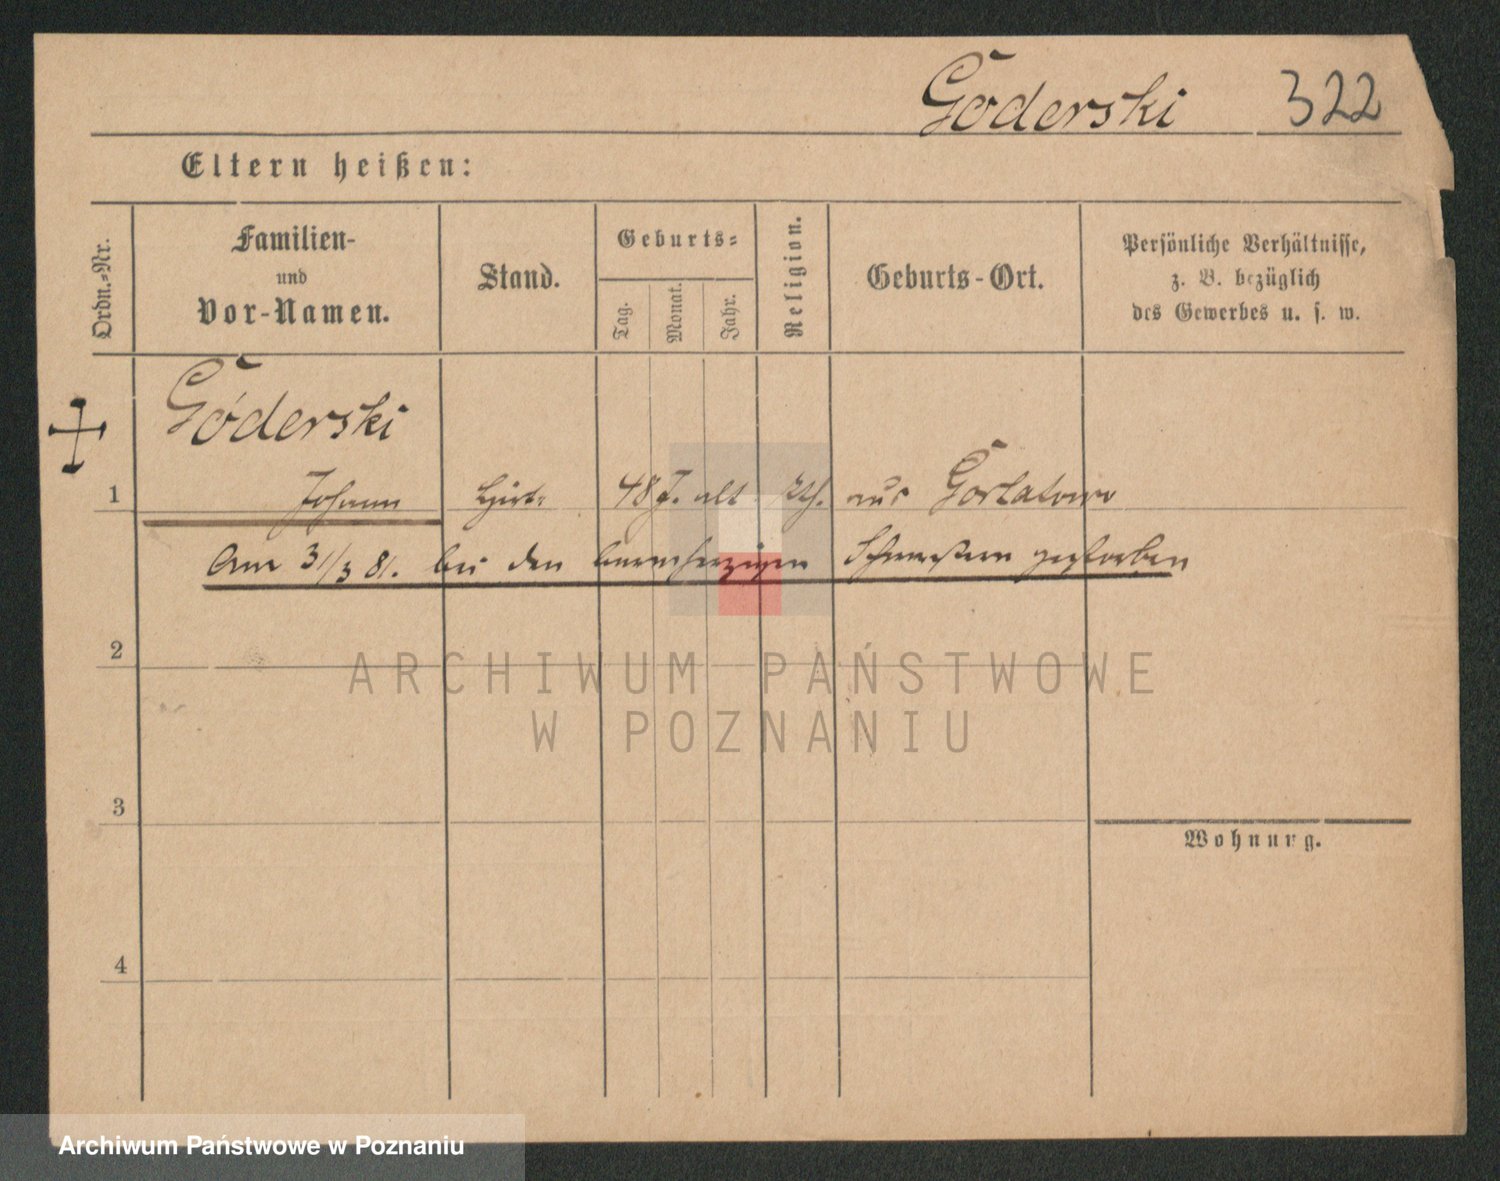 Goderski 322
Eltern heißen:
Ordn.-Nr.
Familien-
und
Vor-Namen.
Stand.
Geburts-
Tag.
Monat.
Jahr.
Religion.
Geburts-Ort.
Persönliche Verhältnisse,
z. B. bezüglich
des Gewerbes u. s. w.
Góderski
1 Johann Hirt 48 J. alt kth. aus Gortatowo
Am 31/3 81. bei den barmherzigen Schwestern gestorben
2
ARCHIWUM PAŃSTWOWE
W POZNANIU
3
Wohnung.
4
Archiwum Państwowe w Poznaniu